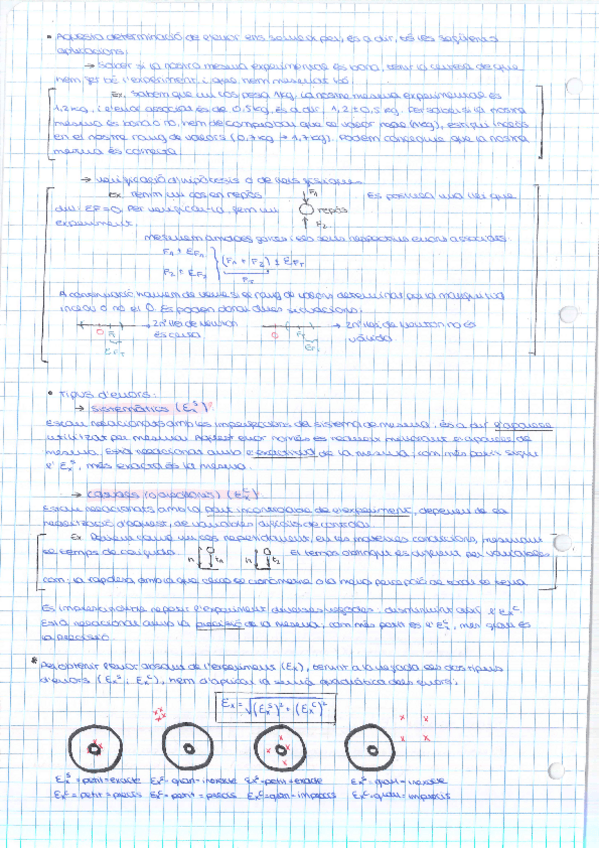 • Aquesta determinació de l'error ens servirà per, és a dir, té les següents
aplicacions:
→ Saber si la nostra mesura experimental és bona, tenir la certesa de que
hem fet bé l'experiment i que hem mesurat bé.
Ex. Sabem que un cos pesa 1kg, la nostra mesura experimental és
1,2kg, i l'error associat és de 0,5kg, és a dir, 1,2±0,5 kg. Per saber si la nostra
mesura és bona o no, hem de comprovar que el valor real (1kg), estigui inclòs
en el nostre rang de valors (0,7kg → 1,7kg). Podem concloure que la nostra
mesura és correcta.
→ Verificació d'hipòtesis o de lleis físiques.
Ex. Tenim un cos en repòs F₁ Es postula una llei que
diu: ΣF=0. Per verificar-la, fem un repòs
experiment. F₂
Mesurem ambdues forces i els seus respectius errors associats:
F₁ ± εF₁
(F₁ + F₂) ± εFT
F₂ ± εF₂
FT
A continuació haurem de veure si el rang de valors determinat per la mesura
inclou o no el 0. Es poden donar dues situacions:
→ 2ª llei de Newton → 2ª llei de Newton no és
0 FT és certa 0 FT vàlida
εFT εFT
• Tipus d'errors:
→ Sistemàtics (εxˢ)
Estan relacionats amb les imperfeccions del sistema de mesura, és a dir, l'aparell
utilitzat per mesurar. Aquest error només es redueix millorant l'aparell de
mesura. Està relacionat amb l'exactitud de la mesura, com més petit sigui
l'εxˢ, més exacta és la mesura.
→ Casuals (o aleatoris) (εxᶜ)
Estan relacionats amb la part incontrolable de l'experiment, depenen de la
realització d'aquest, de variables difícils de controlar.
Ex Deixem caure un cos repetidament, en les mateixes condicions, mesurem
el temps de caiguda. h t₁ h t₂ El temps obtingut és diferent per variables
com: la rapidesa amb la que
És important repetir l'experiment diverses vegades, disminuint així l'εxᶜ.
Està relacionat amb la precisió de la mesura, com més petit és l'εxᶜ, més gran és
la precisió.
* Per obtenir l'error absolut de l'experiment (εx), tenint a la vegada els dos tipus
d'errors (εxˢ, εxᶜ), hem d'aplicar la suma quadràtica dels errors:
εx = √(εxˢ)² + (εxᶜ)²
εxˢ = petit = exacte εxˢ = gran = inexacte εxˢ = petit = exacte εxˢ = gran = inexacte
εxᶜ = petit = precís εxᶜ = petit = precís εxᶜ = gran = imprecís εxᶜ = gran = imprecís